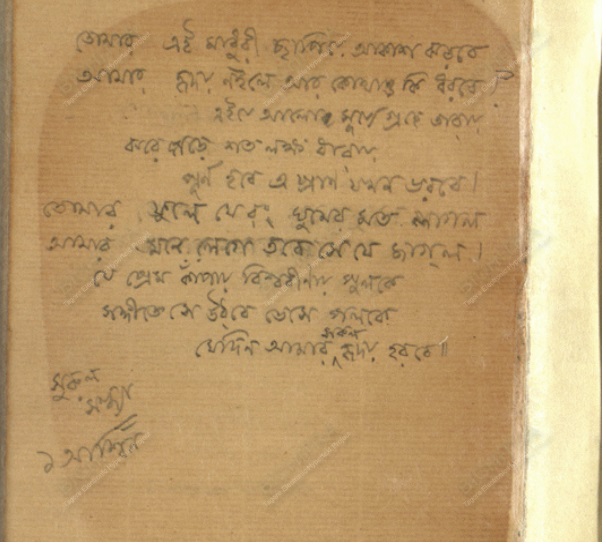 তোমার এই মাধুরী ছাপিয়ে আকাশ ঝরবে
আমার হৃদয় নইলে আর কোথাও কি ধরবে?
এই যে আলোর সূর্যে গ্রহে তারায়
ঝরে পড়ে শত লক্ষ ধারায়
পূর্ণ হবে এ প্রাণ যখন ভরবে।
তোমার ফুলে যে রং ঘুমের মত লাগল
আমার মনে লেগে তবে সে যে জাগল।
যে প্রেম কাঁপায় বিশ্ববীণায় পুলকে
সঙ্গীতে সে উঠবে ভেসে পলকে
যেদিন আমার সকল হৃদয় হরবে॥
সুরুল
সন্ধ্যা
১ আশ্বিন